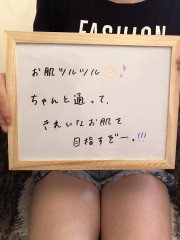 FASHION
お肌ツルツル😊!
ちゃんと通って、
きれいなお肌を
目指すぞー。!!!